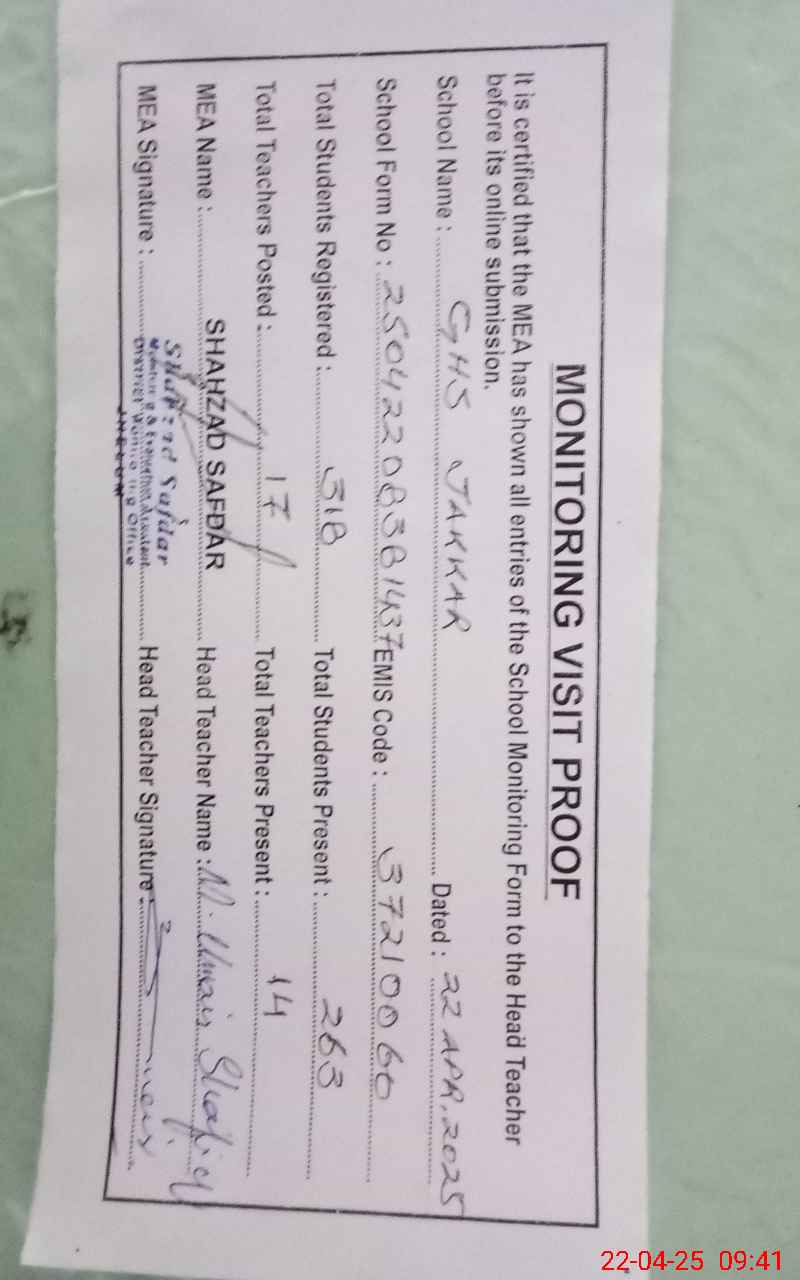 MONITORING VISIT PROOF
It is certified that the MEA has shown all entries of the School Monitoring Form to the Head Teacher
before its online submission.
School Name : GHS JAKKAR Dated : 22 APR, 2025
School Form No : 25042208381437 EMIS Code : 37210060
Total Students Registered : 318 Total Students Present : 263
Total Teachers Posted : 17 Total Teachers Present : 14
MEA Name : SHAHZAD SAFDAR Head Teacher Name : M. Umair Shafiq
MEA Signature : Head Teacher Signature
Shahzad Safdar
Monitoring & Evaluation Assistant
District Monitoring Office
JHELUM
22-04-25 09:41